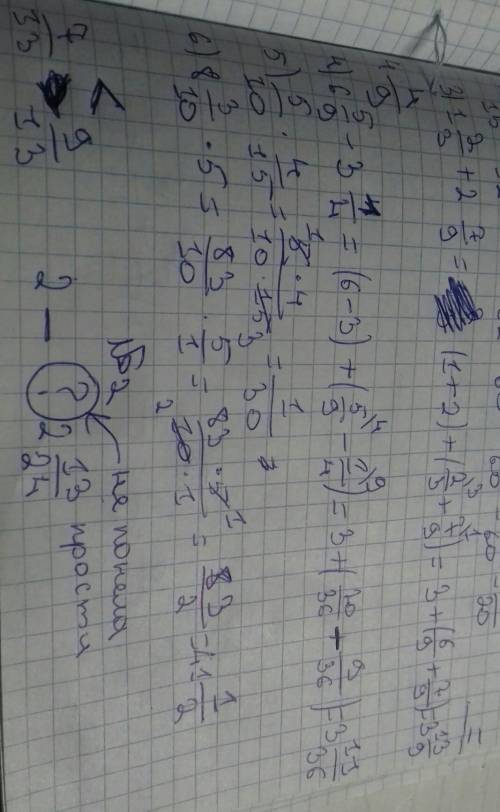 3) 1 2/3 + 2 7/9 = (1+2) + (2/3 + 7/9) = 3 + (6/9 + 7/9) = 3 13/9 =
4 4/9
4) 6 5/9 - 3 1/4 = (6-3) + (5/9 - 1/4) = 3 + (20/36 - 9/36) = 3 11/36
5) 5/10 · 4/15 = 5·4/10·15 = 1/30
6) 8 3/10 · 5 = 83/10 · 5/1 = 83·5/10·1 = 83/2 = 41 1/2
№2
7/13 < 9/13
2 — ? 2 13/24
не поняла прости